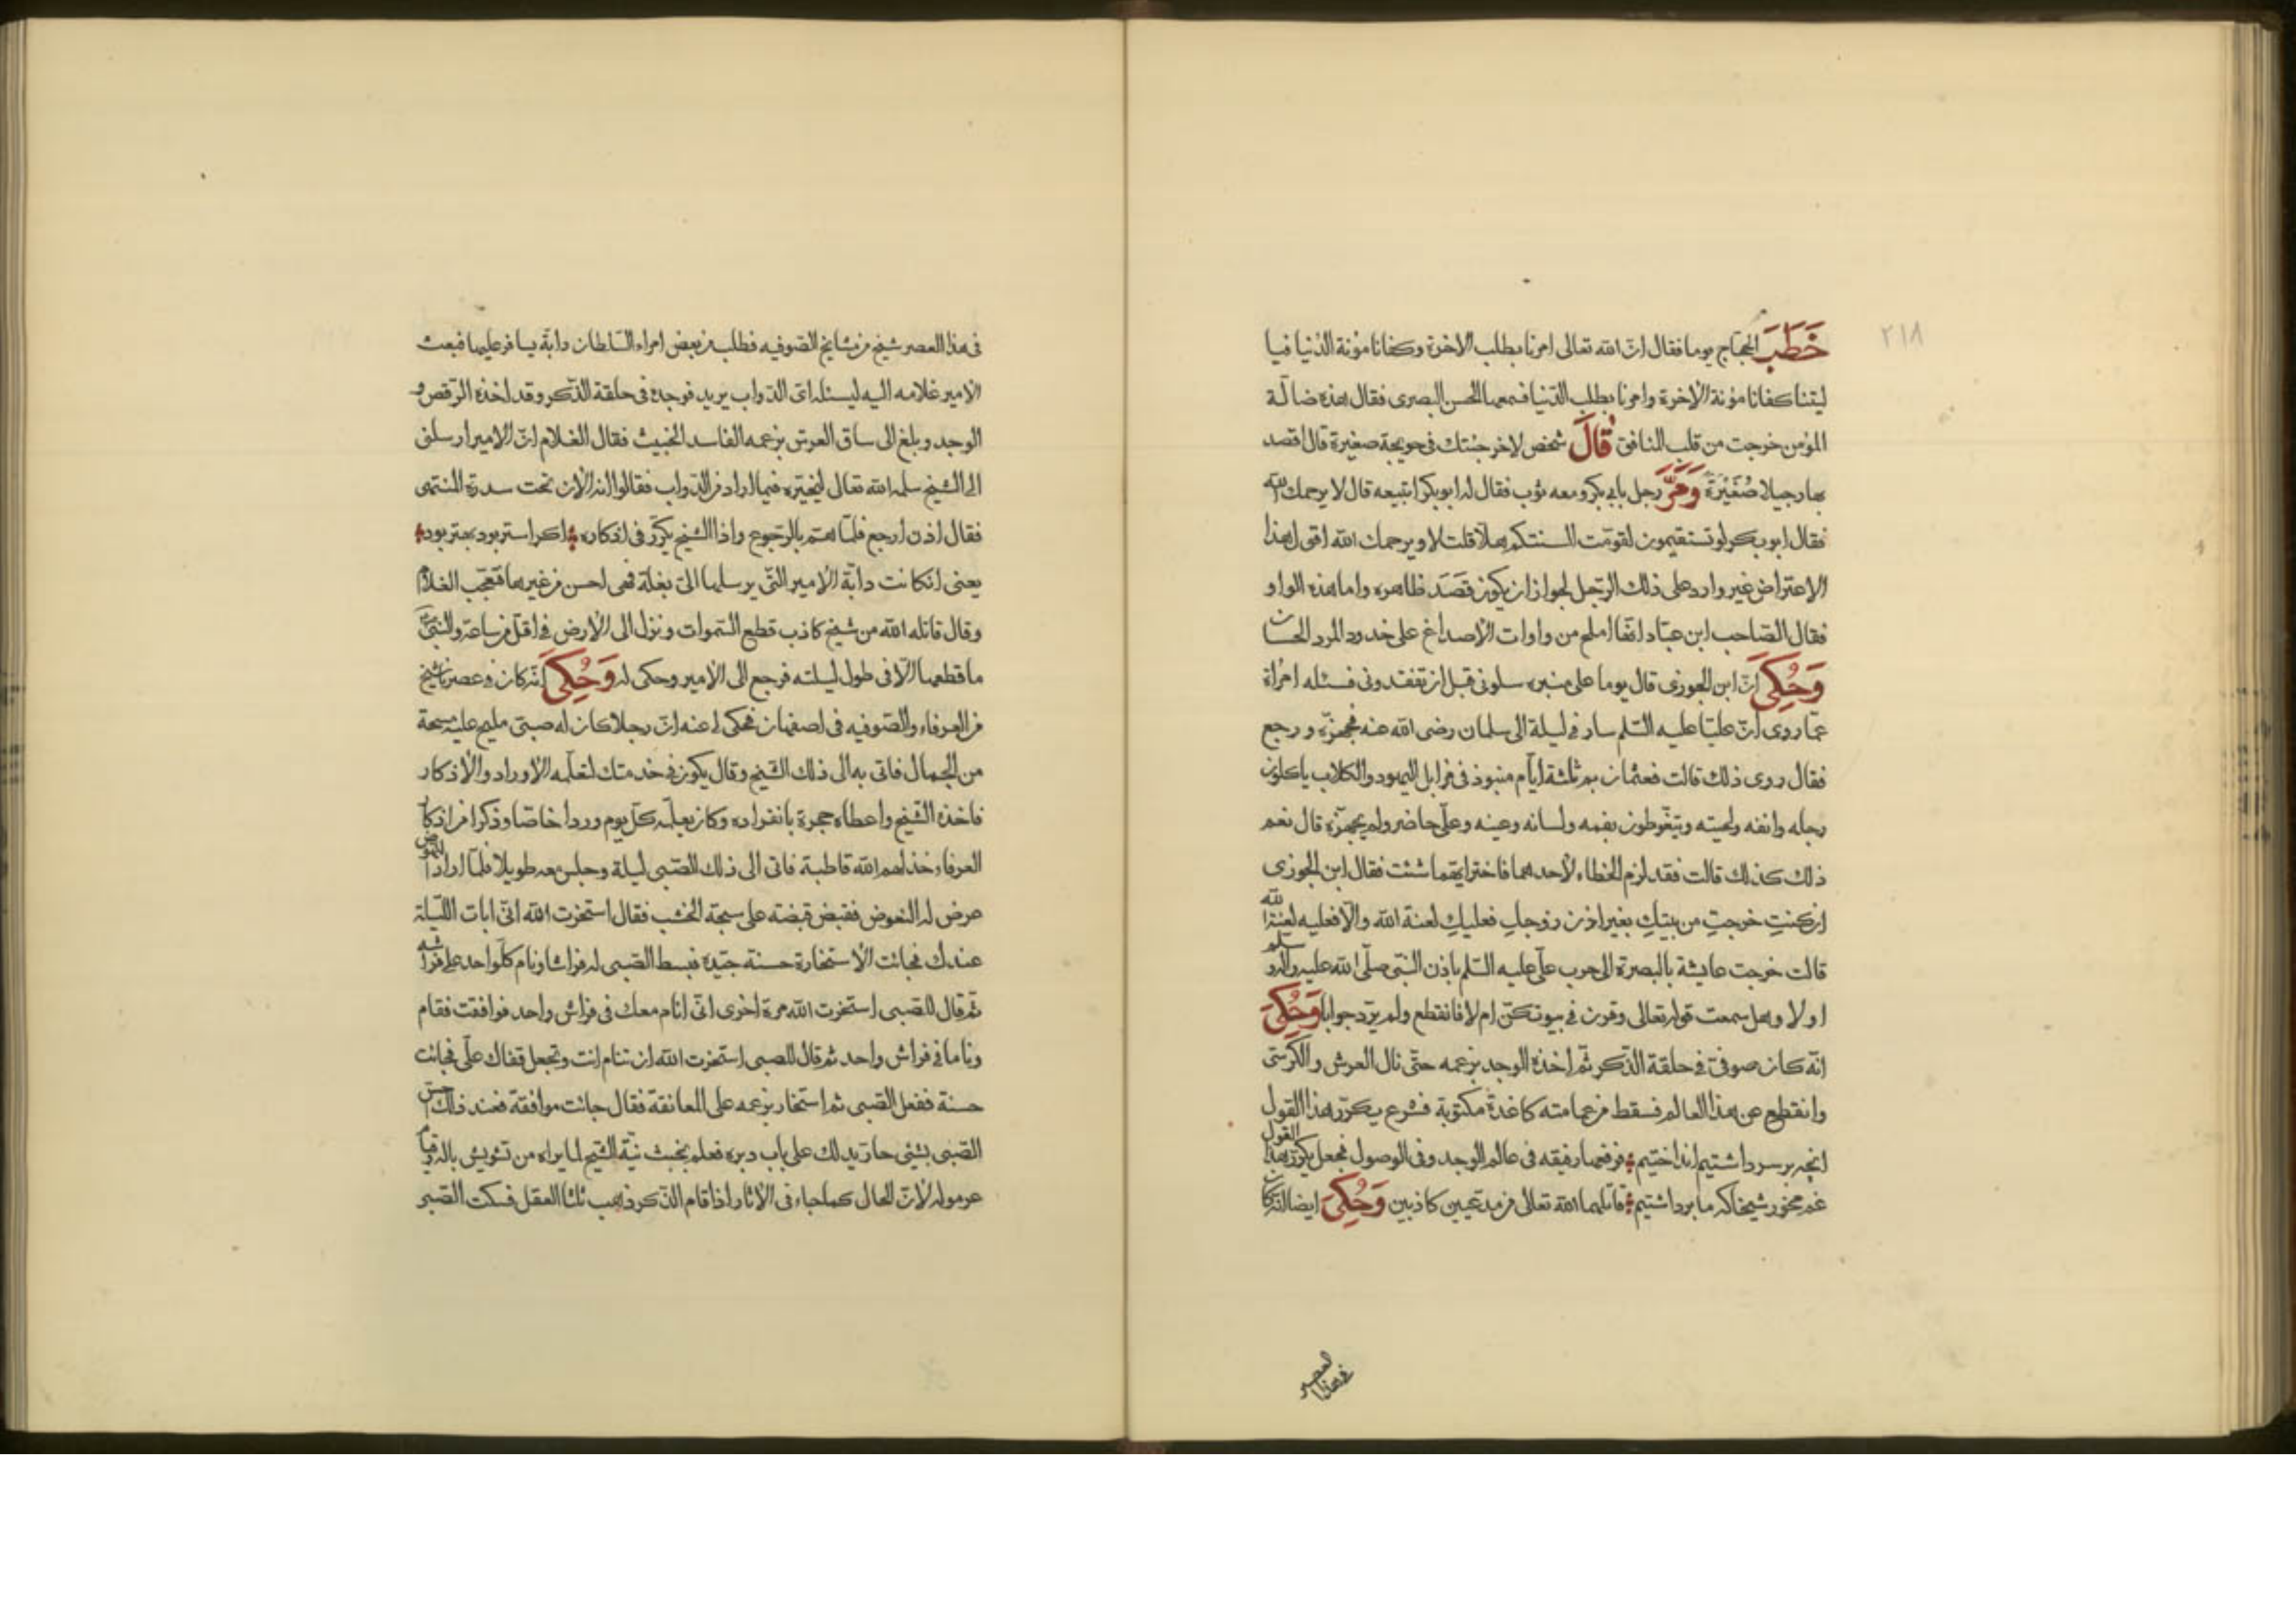 ٢١٨
خَطَبَ الحجاج يوما فقال انّ الله تعالى امرنا بطلب الاخرة وكفانا مؤنة الدنيا فيا
ليتنا كفانا مؤنة الاخرة وامرنا بطلب الدّنيا فسمعها الحسن البصرى فقال هذه ضالّة
المؤمن خرجت من قلب المنافق قَالَ شخص لاخر جئتك فى حويجة صغيرة قال اقصد
بها رجيلا صُغَيْرَة وَمَرَّ رجل بابى بكر ومعه ثوب فقال له ابوبكر اتبيعه قال لا يرحمك الله
فقال ابوبكر لو تستقيمون لقومت السنتكم هلّا قلت لا ويرحمك الله اقول هذا
الاعتراض غير وارد على ذلك الرّجل لجواز ان يكون قَصَدَ ظاهره واما هذه الواو
فقال الصّاحب ابن عبّاد انّها املح من واوات الاصداغ على خدود المرد الحسان
وَحُكِىَ انّ ابن الجوزى قال يوما على منبره سلونى قبل ان تفقدونى فسئله امراة
عمّا روى انّ عليّا عليه السّلم سار فى ليلة الى سلمان رضى الله عنه فجهزّه ورجع
فقال روى ذلك قالت فعثمان بم ثلثة ايّام منبوذ فى مزابل اليهود والكلاب ياكلون
رجله وانفه ولحيته ويتغّوطون بفمه ولسانه وعينه وعلّى حاضر ولم يجهزّه قال نعم
ذلك كذلك قالت فقد لزم الخطاء لاحدهما فاختر ايّهما شئت فقال ابن الجوزى
ان كنتِ خرجتِ من بيتكِ بغير اذن زوجكِ فعليكِ لعنة الله والّا فعليه لعنة الله
قالت خرجت عايشة بالبصرة الى حرب علّى عليه السّلم باذن النّبى صلّى الله عليه واله وسلم
او لا وهل سمعت قوله تعالى وقرن فى بيوتكنّ ام لا فانقطع ولم يردّ جوابا وَحُكِىَ
انّه كان صوفىّ فى حلقة الذّكر ثمّ اخذه الوجد بزعمه حتّى نال العرش والكرسّى
وانقطع عن هذا العالم فسقط من عمامته كاغذة مكتوبة فشرع يكرّر هذا القول
انچه بر سر داشتيم انداختيم فرفعها رفيقه فى عالم الوجد وفى الوصول فجعل يكرّر هذا القول
غم مخور شيخا كه ما برداشتيم قاتلهما الله تعالى من مدّعيين كاذبين وَحُكِىَ ايضا انّه كان
فى هذا العصر
فى هذا العصر شيخ من مشايخ الصّوفيه فطلب من بعض امراء السّلطان دابّة يسافر عليها فبعث
الامير غلامه اليه ليسئله اىّ الدّواب يريد فوجده فى حلقة الذّكر وقد اخذه الرّقص و
الوجد وبلغ الى ساق العرش بزعمه الفاسد الخبيث فقال الغلام انّ الامير ارسلنى
الى الشّيخ سلمه الله تعالى ليخيّره فيما اراد من الدّواب فقالوا انه الان تحت سدرة المنتهى
فقال اذن ارجع فلمّا همّ بالرّجوع واذا الشّيخ يكرّر فى اذكاره اكر استر بود بهتر بود
يعنى ان كانت دابّة الامير الّتى يرسلها الىّ بغلة فهى احسن من غيرها فتعجّب الغلام
وقال قاتله الله من شيخ كاذب قطع السّموات ونزل الى الارض فى اقلّ من ساعة والنّبىّ
ما قطعها الّا فى طول ليلته فرجع الى الامير وحكى له وَحُكِىَ انّه كان فى عصرنا شيخ
من العرفاء والصّوفيه فى اصفهان فحكى لى عنه انّ رجلا كان له صبىّ مليح عليه مسحة
من الجمال فاتى به الى ذلك الشّيخ وقال يكون فى خدمتك لتعلّمه الاوراد والاذكار
فاخذه الشّيخ واعطاه حجرة بانفراده وكان يعلّمه كلّ يوم وردا خاصّا وذكرا من اذكار
العرفاء خذلهم الله قاطبة فاتى الى ذلك الصّبى ليلة وجلس معه طويلا فلمّا اراد النهوض
عرض له النعوض فقبض قبضته على سبحة الخشب فقال استخرت الله انّى ابات اللّيلة
عندك فجائت الاستخارة حسنة جيّدة فبسط الصّبى له فراشا ونام كلّ واحد على فراشه
ثم قال للصّبى استخرت الله مرة اخرى انّى انام معك فى فراش واحد فوافقت فقام
وناما فى فراش واحد ثم قال للصبى استخرت الله ان تنام انت وتجعل قفاك علّى فجائت
حسنة ففعل الصّبى ثم استخار بزعمه على المعانقة فقال جائت موافقة فعند ذلك احسّ
الصّبى بشئى حارّ يدلك على باب دبره فعلم بخبث نيّة الشّيخ لما يراه من تشويش باله وقيام
عرموله لانّ الحال كما جاء فى الاثار اذا قام الذّكر ذهب ثلثا العقل فسكت الصّبى